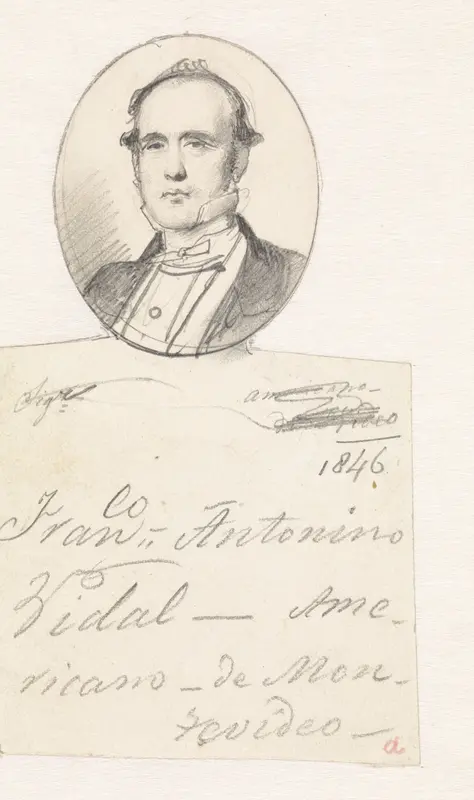 Sigr
1846
Franco Antonino
Vidal — Ame-
ricano - de Mon-
tevideo —
a